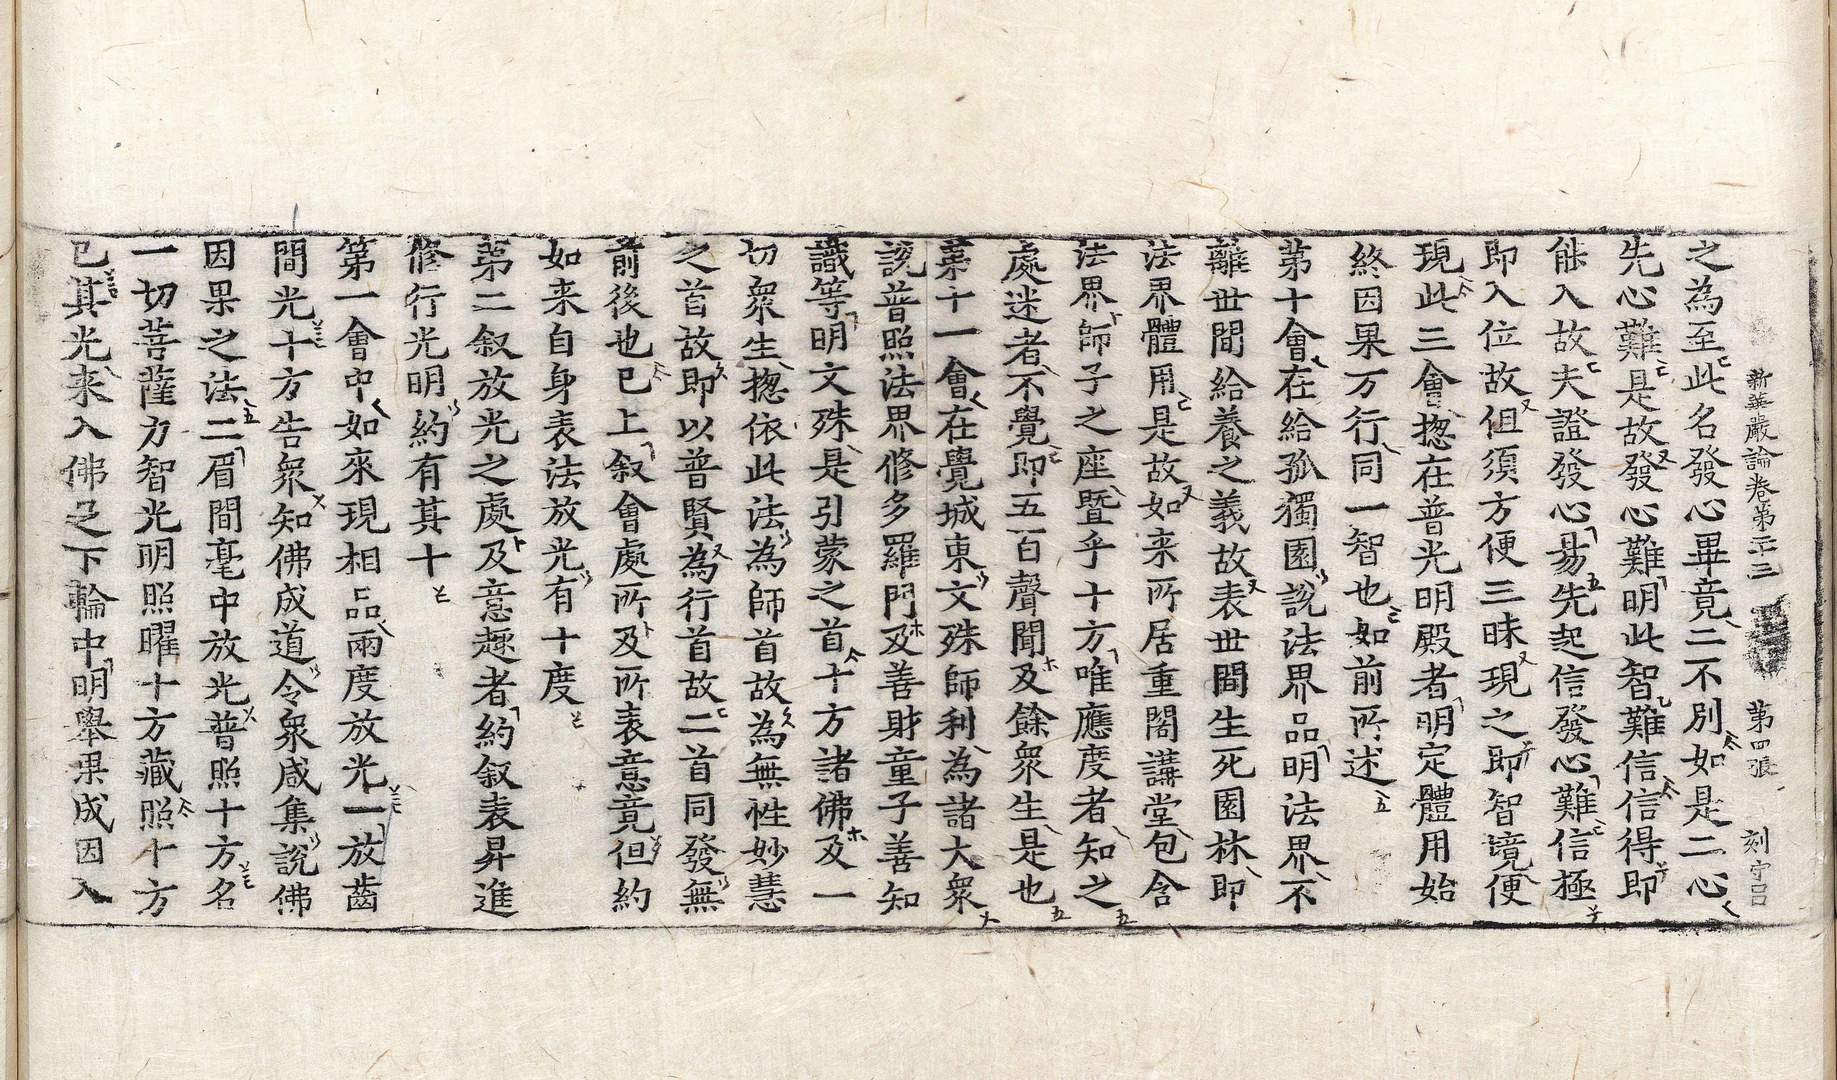 新華嚴論卷第三十三 第四張 刻守呂
之為至此名發心畢竟二不別如是二心
先心難是故發心難明此智難信信得即
能入故夫證發心易先起信發心難信極
即入位故但須方便三昧現之即智境便
現此三會揔在普光明殿者明定體用始
終因果万行同一智也如前所述
第十會在給孤獨園說法界品明法界不
離世間給養之義故表世間生死園林即
法界體用是故如来所居重閣講堂包含
法界師子之座曁乎十方唯應度者知之
處迷者不覺即五百聲聞及餘衆生是也
第十一會在覺城東文殊師利為諸大衆
說普照法界修多羅門及善財童子善知
識等明文殊是引蒙之首十方諸佛及一
切衆生揔依此法為師首故為無性妙慧
之首故即以普賢為行首故二首同發無
前後也已上叙會處所及所表意竟但約
如来自身表法放光有十度
第二叙放光之處及意趣者約叙表昇進
修行光明約有其十
第一會中如來現相品兩度放光一放齒
間光十方告衆知佛成道令衆咸集說佛
因果之法二眉間毫中放光普照十方名
一切菩薩力智光明照曜十方藏照十方
已其光來入佛足下輪中明舉果成因入